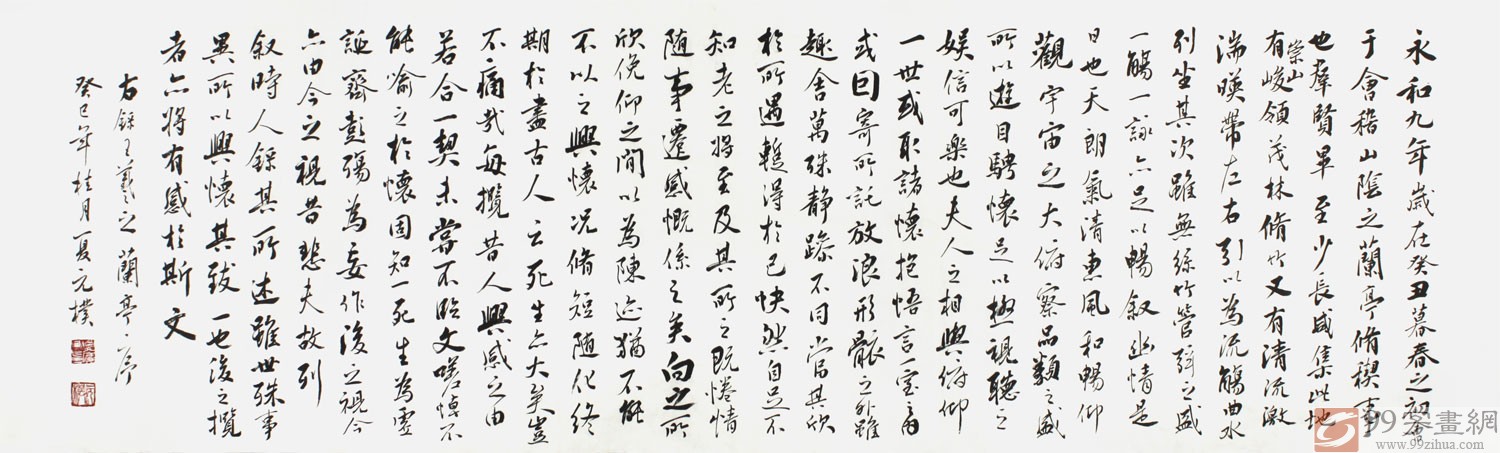 永和九年歲在癸丑暮春之初會
于會稽山陰之蘭亭脩禊事
也羣賢畢至少長咸集此地
有崇山峻領茂林脩竹又有清流激
湍暎帶左右引以為流觴曲水
列坐其次雖無絲竹管弦之盛
一觴一詠亦足以暢叙幽情是
日也天朗氣清惠風和暢仰
觀宇宙之大俯察品類之盛
所以遊目騁懷足以極視聽之
娱信可樂也夫人之相與俯仰
一世或取諸懷抱悟言一室之內
或因寄所託放浪形骸之外雖
趣舍萬殊静躁不同當其欣
於所遇蹔得於己怏然自足不
知老之將至及其所之既惓情
随事遷感慨係之矣向之所
欣俛仰之間以為陳迹猶不能
不以之興懷况脩短随化終
期於盡古人云死生亦大矣豈
不痛哉每攬昔人興感之由
若合一契未嘗不臨文嗟悼不
能喻之於懷固知一死生為虛
誕齊彭殤為妄作後之視今
亦由今之視昔悲夫故列
叙時人録其所述雖世殊事
異所以興懷其致一也後之攬
者亦將有感於斯文
右録王羲之蘭亭序
癸巳年桂月夏元樸
99字畫網
www.99zihua.com